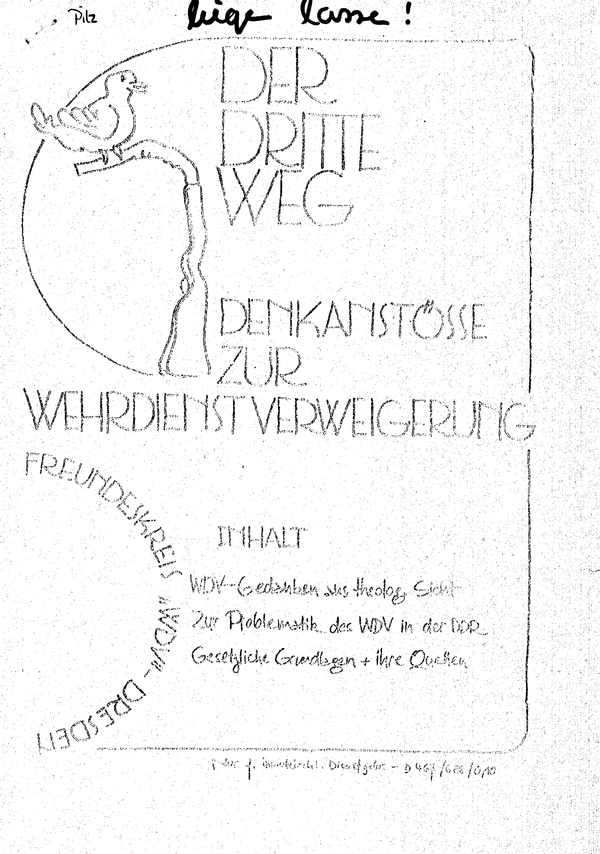 Pilz
lasse!
DER
DRITTE
WEG
DENKANSTÖSSE
ZUR
WEHRDIENSTVERWEIGERUNG
FREUNDESKREIS "WDV" - DRESDEN
INHALT
WDV-Gedanken aus theolog. Sicht
Zur Problematik des WDV in der DDR
Gesetzliche Grundlagen + ihre Quellen
Nur f. innerkirchl. Dienstgebr. -